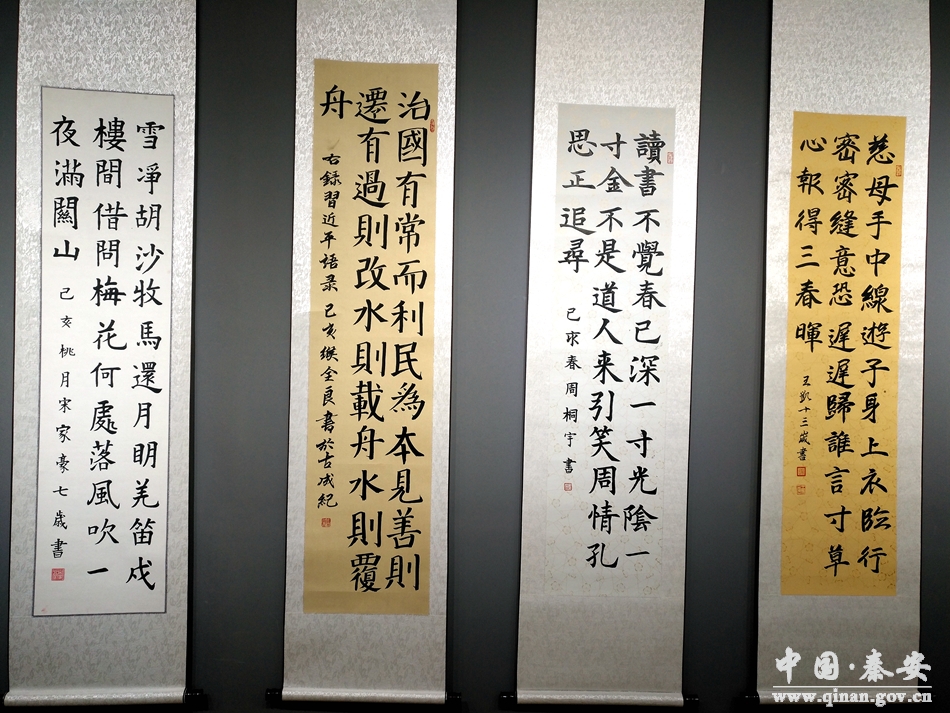 慈母手中線遊子身上衣臨行
密密縫意恐遲遲歸誰言寸草
心報得三春暉
王凱十三歲書
讀書不覺春已深一寸光陰一
寸金不是道人来引笑周情孔
思正追尋
己亥春周桐宇書
治國有常而利民為本見善則
遷有過則改水則載舟水則覆
舟
右録習近平語录己亥緱全良書於古成紀
雪淨胡沙牧馬還月明羌笛戍
樓間借問梅花何處落風吹一
夜滿關山
己亥桃月宋家豪七歲書
中国·秦安
www.qinan.gov.cn